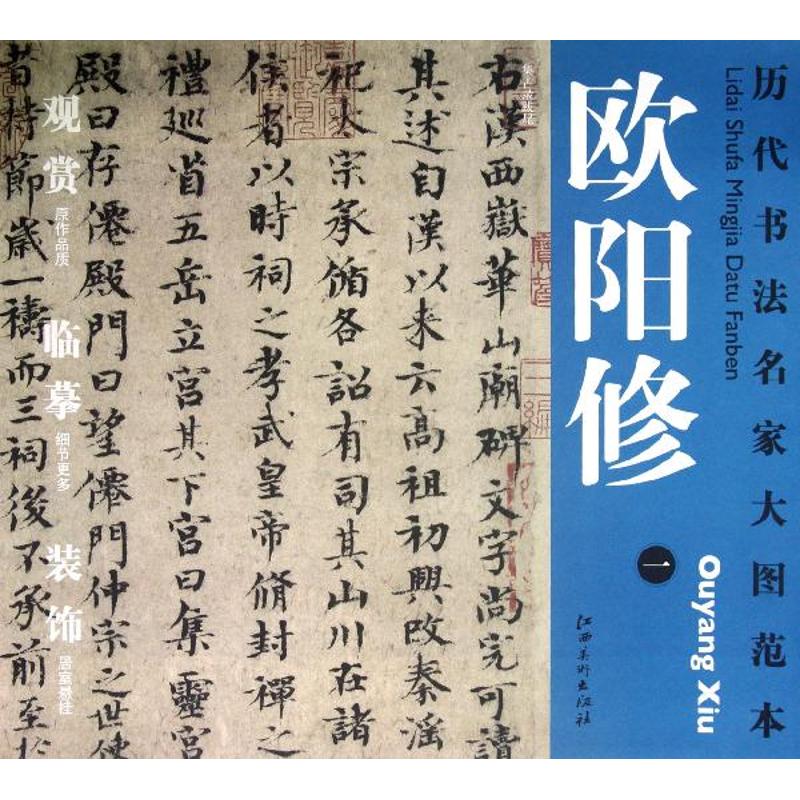 历代书法名家大图范本
Lidai Shufa Mingjia Datu Fanben
欧阳修
一
Ouyang Xiu
江西美术出版社
集古录跋尾
右漢西嶽華山廟碑文字尚完可讀
其述自漢以来云高祖初興改秦淫
祀太宗承循各詔有司其山川在諸
侯者以時祠之孝武皇帝脩封禪之
禮巡省五岳立宫其下宫曰集靈宫
殿曰存僊殿門曰望僊門仲宗之世使
者持節歲一禱而三祠後不承前至於
观赏
原作品质
临摹
细节更多
装饰
居室悬挂